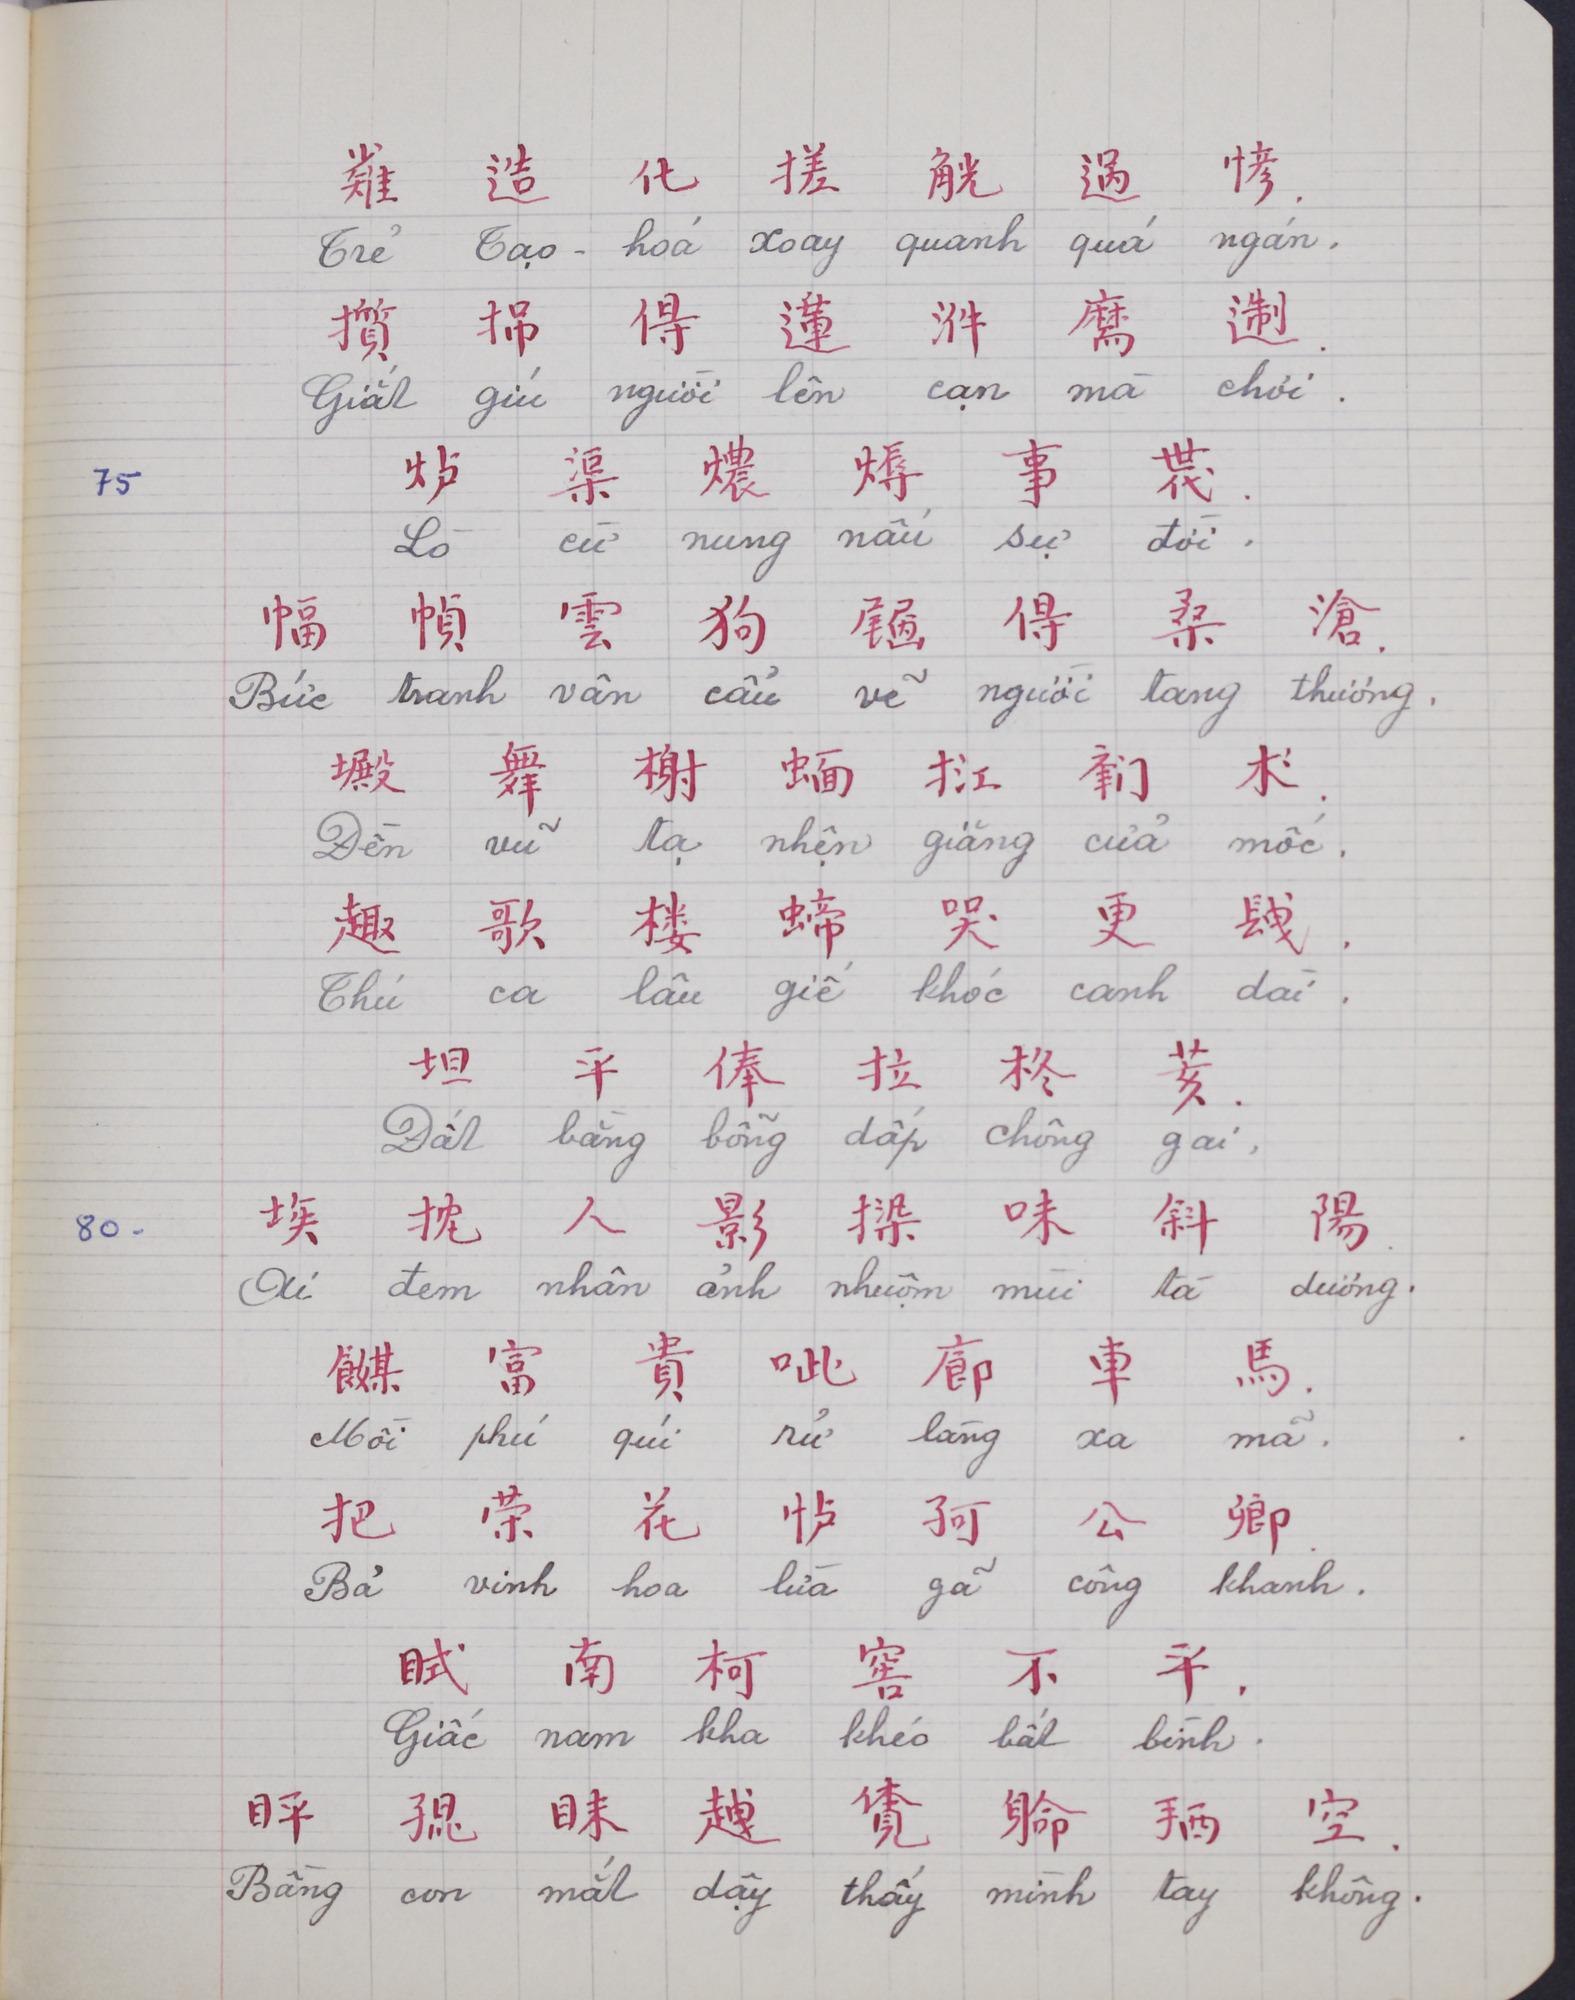 造化搓觥過慘.
Trẻ Tạo-hoá xoay quanh quá ngán.
攢得蓮𣴓
Giắt giú người lên cạn mà chơi.
75 炉渠燶燖事
Lò cừ nung nấu sự đời.
幅幀雲狗得桑滄.
Bức tranh vân cẩu vẽ người tang thương.
舞榭𧍋扛
Đền vũ tạ nhện giăng cửa mốc.
趣歌楼蝭哭更𨱽.
Thú ca lâu giế khóc canh dài.
坦平俸拉柊荄.
Đất bằng bỗng dấp chông gai.
80- 埃人影味斜陽.
Ai đem nhân ảnh nhuộm mùi tà dương.
富貴呲廊車馬.
Mồi phú quí rử làng xa mã.
把荣花公卿.
Bả vinh hoa lừa gã công khanh.
南柯窖不平.
Giấc nam kha khéo bất bình.
𥅈𥚇空.
Bằng con mắt dậy thấy mình tay không.